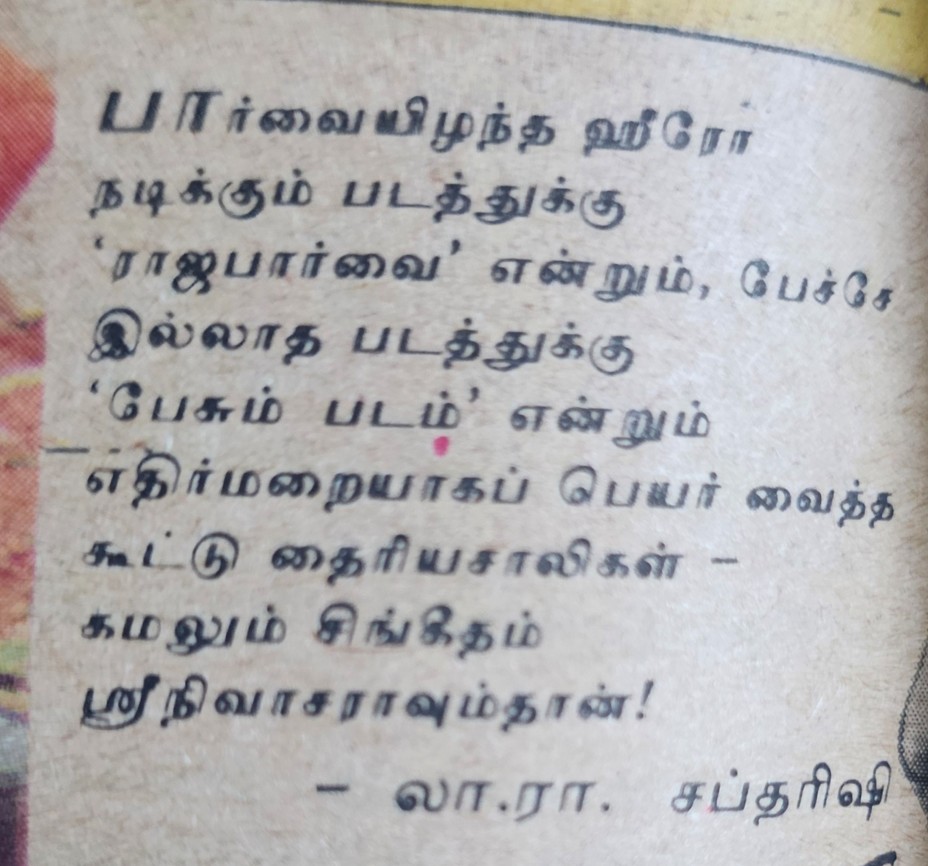 பார்வையிழந்த ஹீரோ
நடிக்கும் படத்துக்கு
‘ராஜபார்வை’ என்றும், பேச்சே
இல்லாத படத்துக்கு
‘பேசும் படம்’ என்றும்
எதிர்மறையாகப் பெயர் வைத்த
கூட்டு தைரியசாலிகள் –
கமலும் சிங்கீதம்
ஸ்ரீநிவாசராவும்தான்!
– லா.ரா. சப்தரிஷி